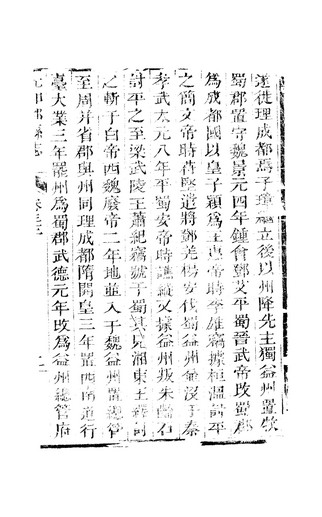 遂徙理成都焉子璋立後以州降先主獨益州置牧
蜀郡置守魏景元四年鍾會鄧艾平蜀晉武帝改蜀郡
為成都國以皇子穎為王惠帝時李雄竊據桓溫討平
之簡文帝時苻堅遣將鄧羌楊安伐蜀益州淪沒于秦
孝武太元八年平蜀安帝時譙縱又據益州叛朱齡石
討平之至梁武陵王蕭紀竊號于蜀其兄湘東王繹討
之斬于白帝西魏廢帝二年地並入于魏益州置總管
至周并省郡與州同理成都隋開皇三年置西南道行
臺大業三年罷州為蜀郡武德元年改為益州總管府
元和郡縣志 卷三